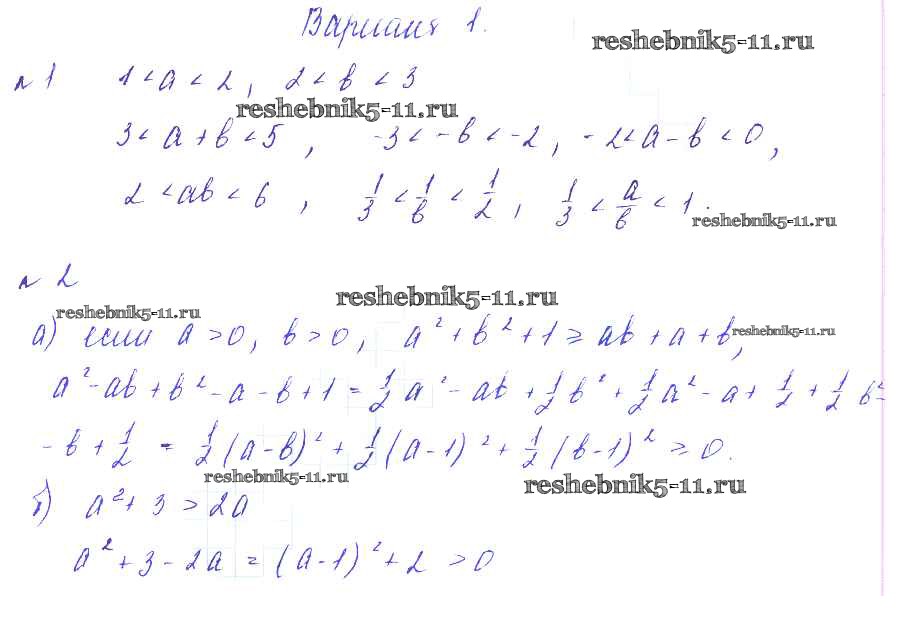 Вариант 1.
reshebnik5-11.ru
№1 1 < a < 2, 2 < b < 3
reshebnik5-11.ru
3 < a + b < 5, -3 < -b < -2, -2 < a - b < 0,
2 < ab < 6, 1/3 < 1/b < 1/2, 1/3 < a/b < 1.
reshebnik5-11.ru
№2
reshebnik5-11.ru
reshebnik5-11.ru
а) если a > 0, b > 0, a² + b² + 1 ≥ ab + a + b,
reshebnik5-11.ru
a² - ab + b² - a - b + 1 = 1/2 a² - ab + 1/2 b² + 1/2 a² - a + 1/2 + 1/2 b² -
- b + 1/2 = 1/2 (a - b)² + 1/2 (a - 1)² + 1/2 (b - 1)² ≥ 0.
reshebnik5-11.ru
reshebnik5-11.ru
б) a² + 3 > 2a
a² + 3 - 2a = (a - 1)² + 2 > 0